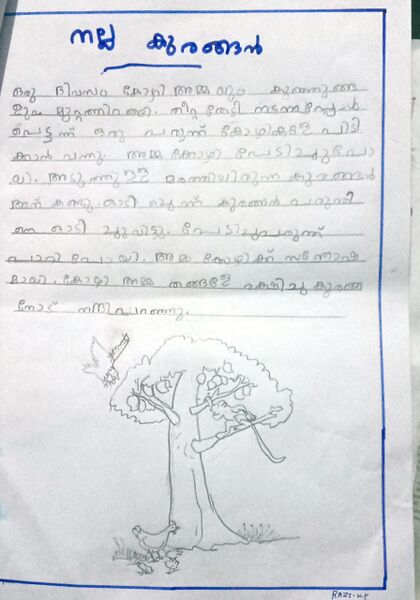 നല്ല കുരങ്ങൻ
ഒരു ദിവസം കോഴി അമ്മയും കുഞ്ഞുങ്ങ
ളും മുറ്റത്തിറങ്ങി. തീറ്റ തേടി നടന്നപ്പോൾ
പെട്ടന്ന് ഒരു പരുന്ത് കോഴികളെ പിടി
ക്കാൻ വന്നു. അമ്മ കോഴി പേടിച്ചുപോ
യി. അടുത്തുള്ള മരത്തിലിരുന്ന കുരങ്ങൻ
അത് കണ്ടു. ഓടി ചെന്ന് കുരങ്ങൻ പരുന്തി
നെ ഓടിച്ചുവിട്ടു. പേടിച്ചുപരുന്ത്
പാറി പോയി. അമ്മ കോഴിക്ക് സന്തോഷ
മായി. കോഴി അമ്മ തങ്ങളെ രക്ഷിച്ച കുരങ്ങ
നോട് നന്ദിപറഞ്ഞു.
RAZI-K.P